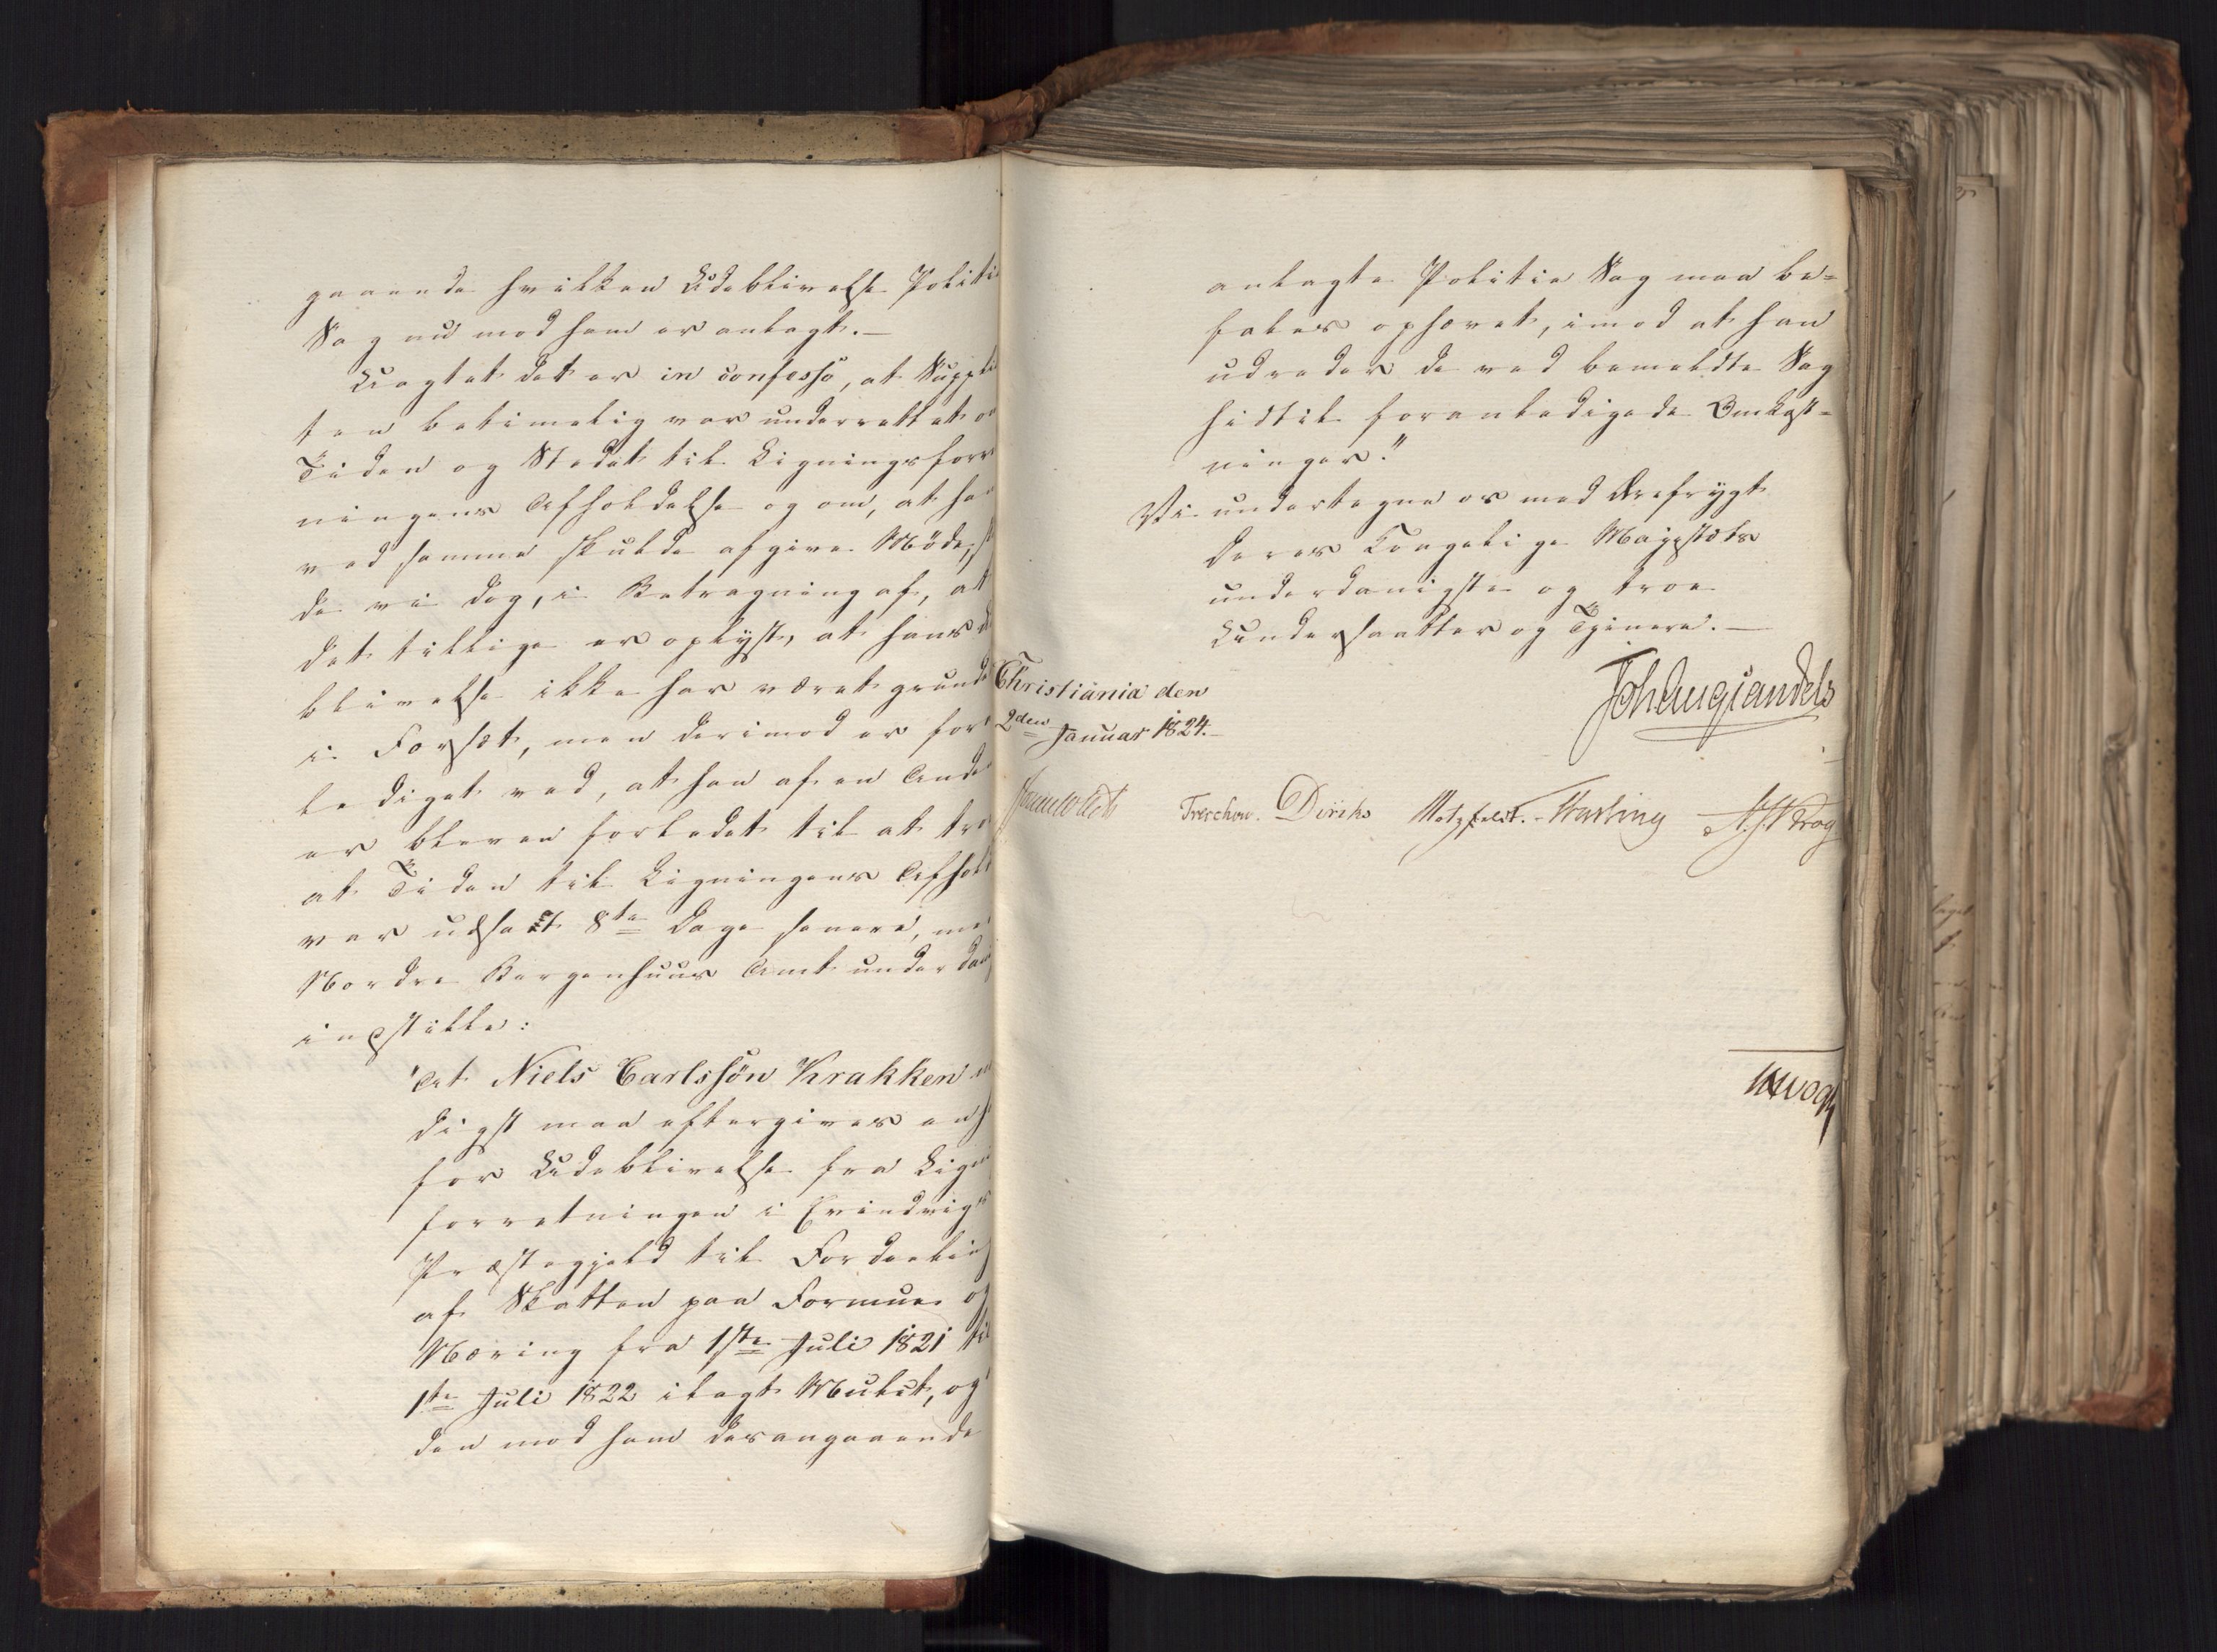 gaaende hvilken Udeblivelse Politie
Sag nu mod ham er anlagt.—
Uagtet det er in confesso, at Suppli
ten betimelig var underrettet o
Tiden og Stedet til Ligningsforr
ningens Afholdelse og om, at ha
ved samme skulde afgive Møde,
de vi dog, i Betragning af, at
det tillige er oplyst, at hans
blivelse ikke har været grund
i Forsæt, men derimod er for
lediget ved, at han af en Ande
er bleven forledet til at tro
at Tiden til Ligningens Afhol
var udsat 8te Dage senere, me
Nordre Bergenhuus Amt underdan
indstille:
"At Niels Carlssøn Krakken
digst maa eftergives en
for Udeblivelse fra Lign
forretningen i Evindvigs
Præstegjeld til Fordeling
af Skatten paa Formue og
Næring fra 1ste Juli 1821 til
1te Juli 1822 ilagt Mulct, og
den mod ham desangaaende
anlagte Politie Sag maa be=
fales ophævet, imod at han
udreder de ved bemeldte Sag
hidtil foranledigede Omkost=
ninger."
Vi undertegne os med Ærefrygt
Deres Kongelige Majestæts
underdanigste og troe
Undersaatter og Tjenere.—
Joh Aug Sandels
Christiania den
2den Januar 1824.
Sommerhielm Treschow. Diriks Motzfeldt. Fasting